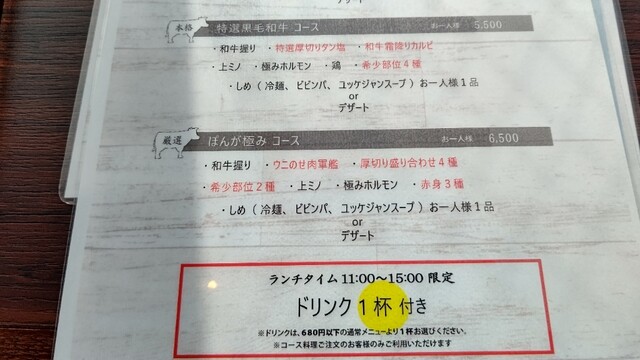 デザート
本格 特選黒毛和牛 コース お一人様 5,500
・和牛握り ・特選厚切りタン塩 ・和牛霜降りカルビ
・上ミノ ・極みホルモン ・鶏 ・希少部位４種
・しめ ( 冷麺、 ビビンパ、 ユッケジャンスープ ) お一人様１品
or
デザート
厳選 ぽんが極み コース お一人様 6,500
・和牛握り ・ウニのせ肉軍艦 ・厚切り盛り合わせ４種
・希少部位２種 ・上ミノ ・極みホルモン ・赤身３種
・しめ ( 冷麺、 ビビンパ、 ユッケジャンスープ ) お一人様１品
or
デザート
ランチタイム 11:00〜15:00 限定
ドリンク１杯 付き
※ドリンクは、680円以下の通常メニューより１杯お選びください。
※コース料理ご注文のお客様のみご利用いただけます